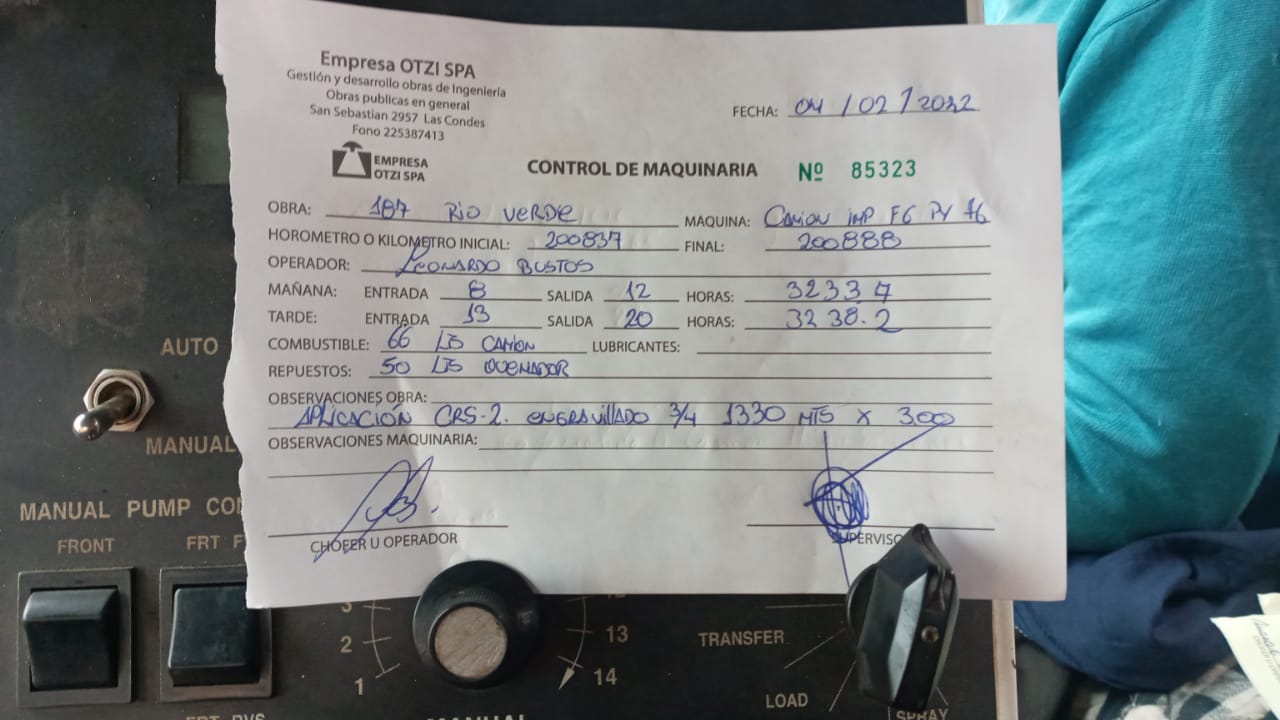 Empresa OTZI SPA
Gestión y desarrollo obras de Ingeniería
Obras publicas en general
San Sebastian 2957 Las Condes
Fono 225387413
EMPRESA
OTZI SPA
FECHA: 04/02/2022
CONTROL DE MAQUINARIA Nº 85323
OBRA: 187 Rio Verde MAQUINA: Camion imp F6 PY 76
HOROMETRO O KILOMETRO INICIAL: 200837 FINAL: 200888
OPERADOR: Leonardo Bustos
MAÑANA: ENTRADA 8 SALIDA 12 HORAS: 3233 7
TARDE: ENTRADA 13 SALIDA 20 HORAS: 3238.2
COMBUSTIBLE: 66 Lts Camion LUBRICANTES:
REPUESTOS: 50 Lts Quemador
OBSERVACIONES OBRA:
Aplicación CRS-2. engravillado 3/4 1330 Mts x 3.00
OBSERVACIONES MAQUINARIA:
CHOFER U OPERADOR
AUTO
MANUAL
MANUAL PUMP
FRONT FRT
3
2
1
13
14
TRANSFER
LOAD
SPRAY
MANUAL